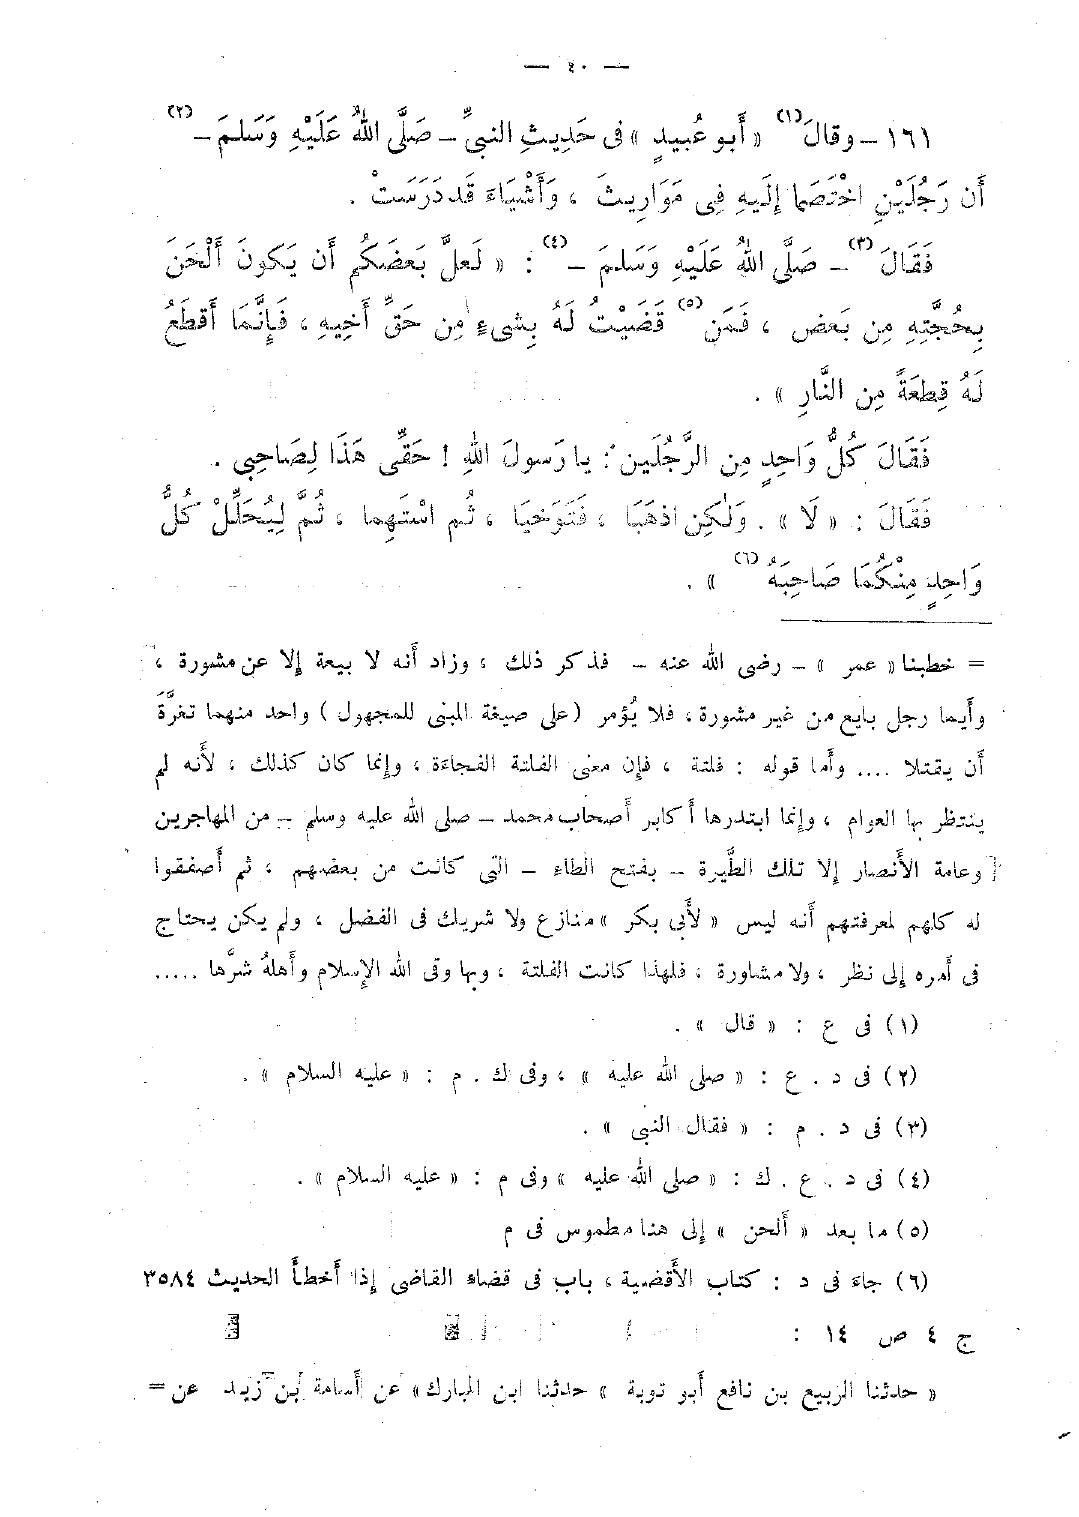 — ٤٠ —
١٦١ – وقالَ (١) « أَبو عُبيدٍ » فى حَدِيثِ النبىِّ – صَلَّى اللهُ عَلَيْهِ وَسَلمَ – (٢)
أَن رَجُلَيْنِ اخْتَصَما إِلَيهِ فِى مَوَارِيثَ ، وَأَشْيَاءَ قَد دَرَسَتْ .
فَقَالَ (٣) – صَلَّى اللهُ عَلَيْهِ وَسَلَمَ – (٤) : « لَعلَّ بَعضَكُم أَن يَكونَ أَلْحَنَ
بِحُجَّتِهِ مِن بَعضٍ ، فَمَن (٥) قَضَيْتُ لَهُ بِشىءٍ مِن حَقِّ أَخِيهِ ، فَإِنَّمَا أَقطَعُ
لَهُ قِطعَةً مِن النَّارِ » .
فَقَالَ كُلُّ وَاحِدٍ مِن الرَّجُلَين : يا رَسولَ اللهِ ! حَقِّى هَذَا لِصَاحِبِى .
فَقَالَ : « لَا » . وَلَكِن اذهَبَا ، فَتَوَخيَا ، ثُم اسْتَهِما ، ثُمَّ لِيُحَلِّلْ كُلُّ
وَاحِدٍ مِنْكُمَا صَاحِبَهُ (٦) » .
= خطبنا « عمر » – رضى الله عنه – فذكر ذلك ، وزاد أنه لا بيعة إلا عن مشورة ،
وأيما رجل بايع من غير مشورة ، فلا يُؤمر (على صيغة المبنى للمجهول) واحد منهما تغرَّةَ
أن يقتلا .... وأما قوله : فلتة ، فإن معنى الفلتة الفجاءة ، وإنما كان كذلك ، لأنه لم
ينتظر بها العوام ، وإنما ابتدرها أكابر أصحاب محمد – صلى الله عليه وسلم – من المهاجرين
وعامة الأنصار إلا تلك الطَّيرة – بفتح الطاء – التى كانت من بعضهم ، ثم أصفقوا
له كلهم لمعرفتهم أنه ليس « لأبى بكر » منازع ولا شريك فى الفضل ، ولم يكن يحتاج
فى أمره إلى نظر ، ولا مشاورة ، فلهذا كانت الفلتة ، وبها وقى الله الإسلام وأهلهُ شرَّها .....
(١) فى ع : « قال » .
(٢) فى د . ع : « صلى الله عليه » ، وفى ك . م : « عليه السلام » .
(٣) فى د . م : « فقال النبى » .
(٤) فى د . ع . ك : « صلى الله عليه » وفى م : « عليه السلام » .
(٥) ما بعد « ألحن » إلى هنا مطموس فى م
(٦) جاء فى د : كتاب الأقضية ، باب فى قضاء القاضى إذا أخطأ الحديث ٣٥٨٤
ج ٤ ص ١٤ :
« حدثنا الربيع بن نافع أبو توبة » حدثنا ابن المبارك » عن أسامة بن زيد عن =